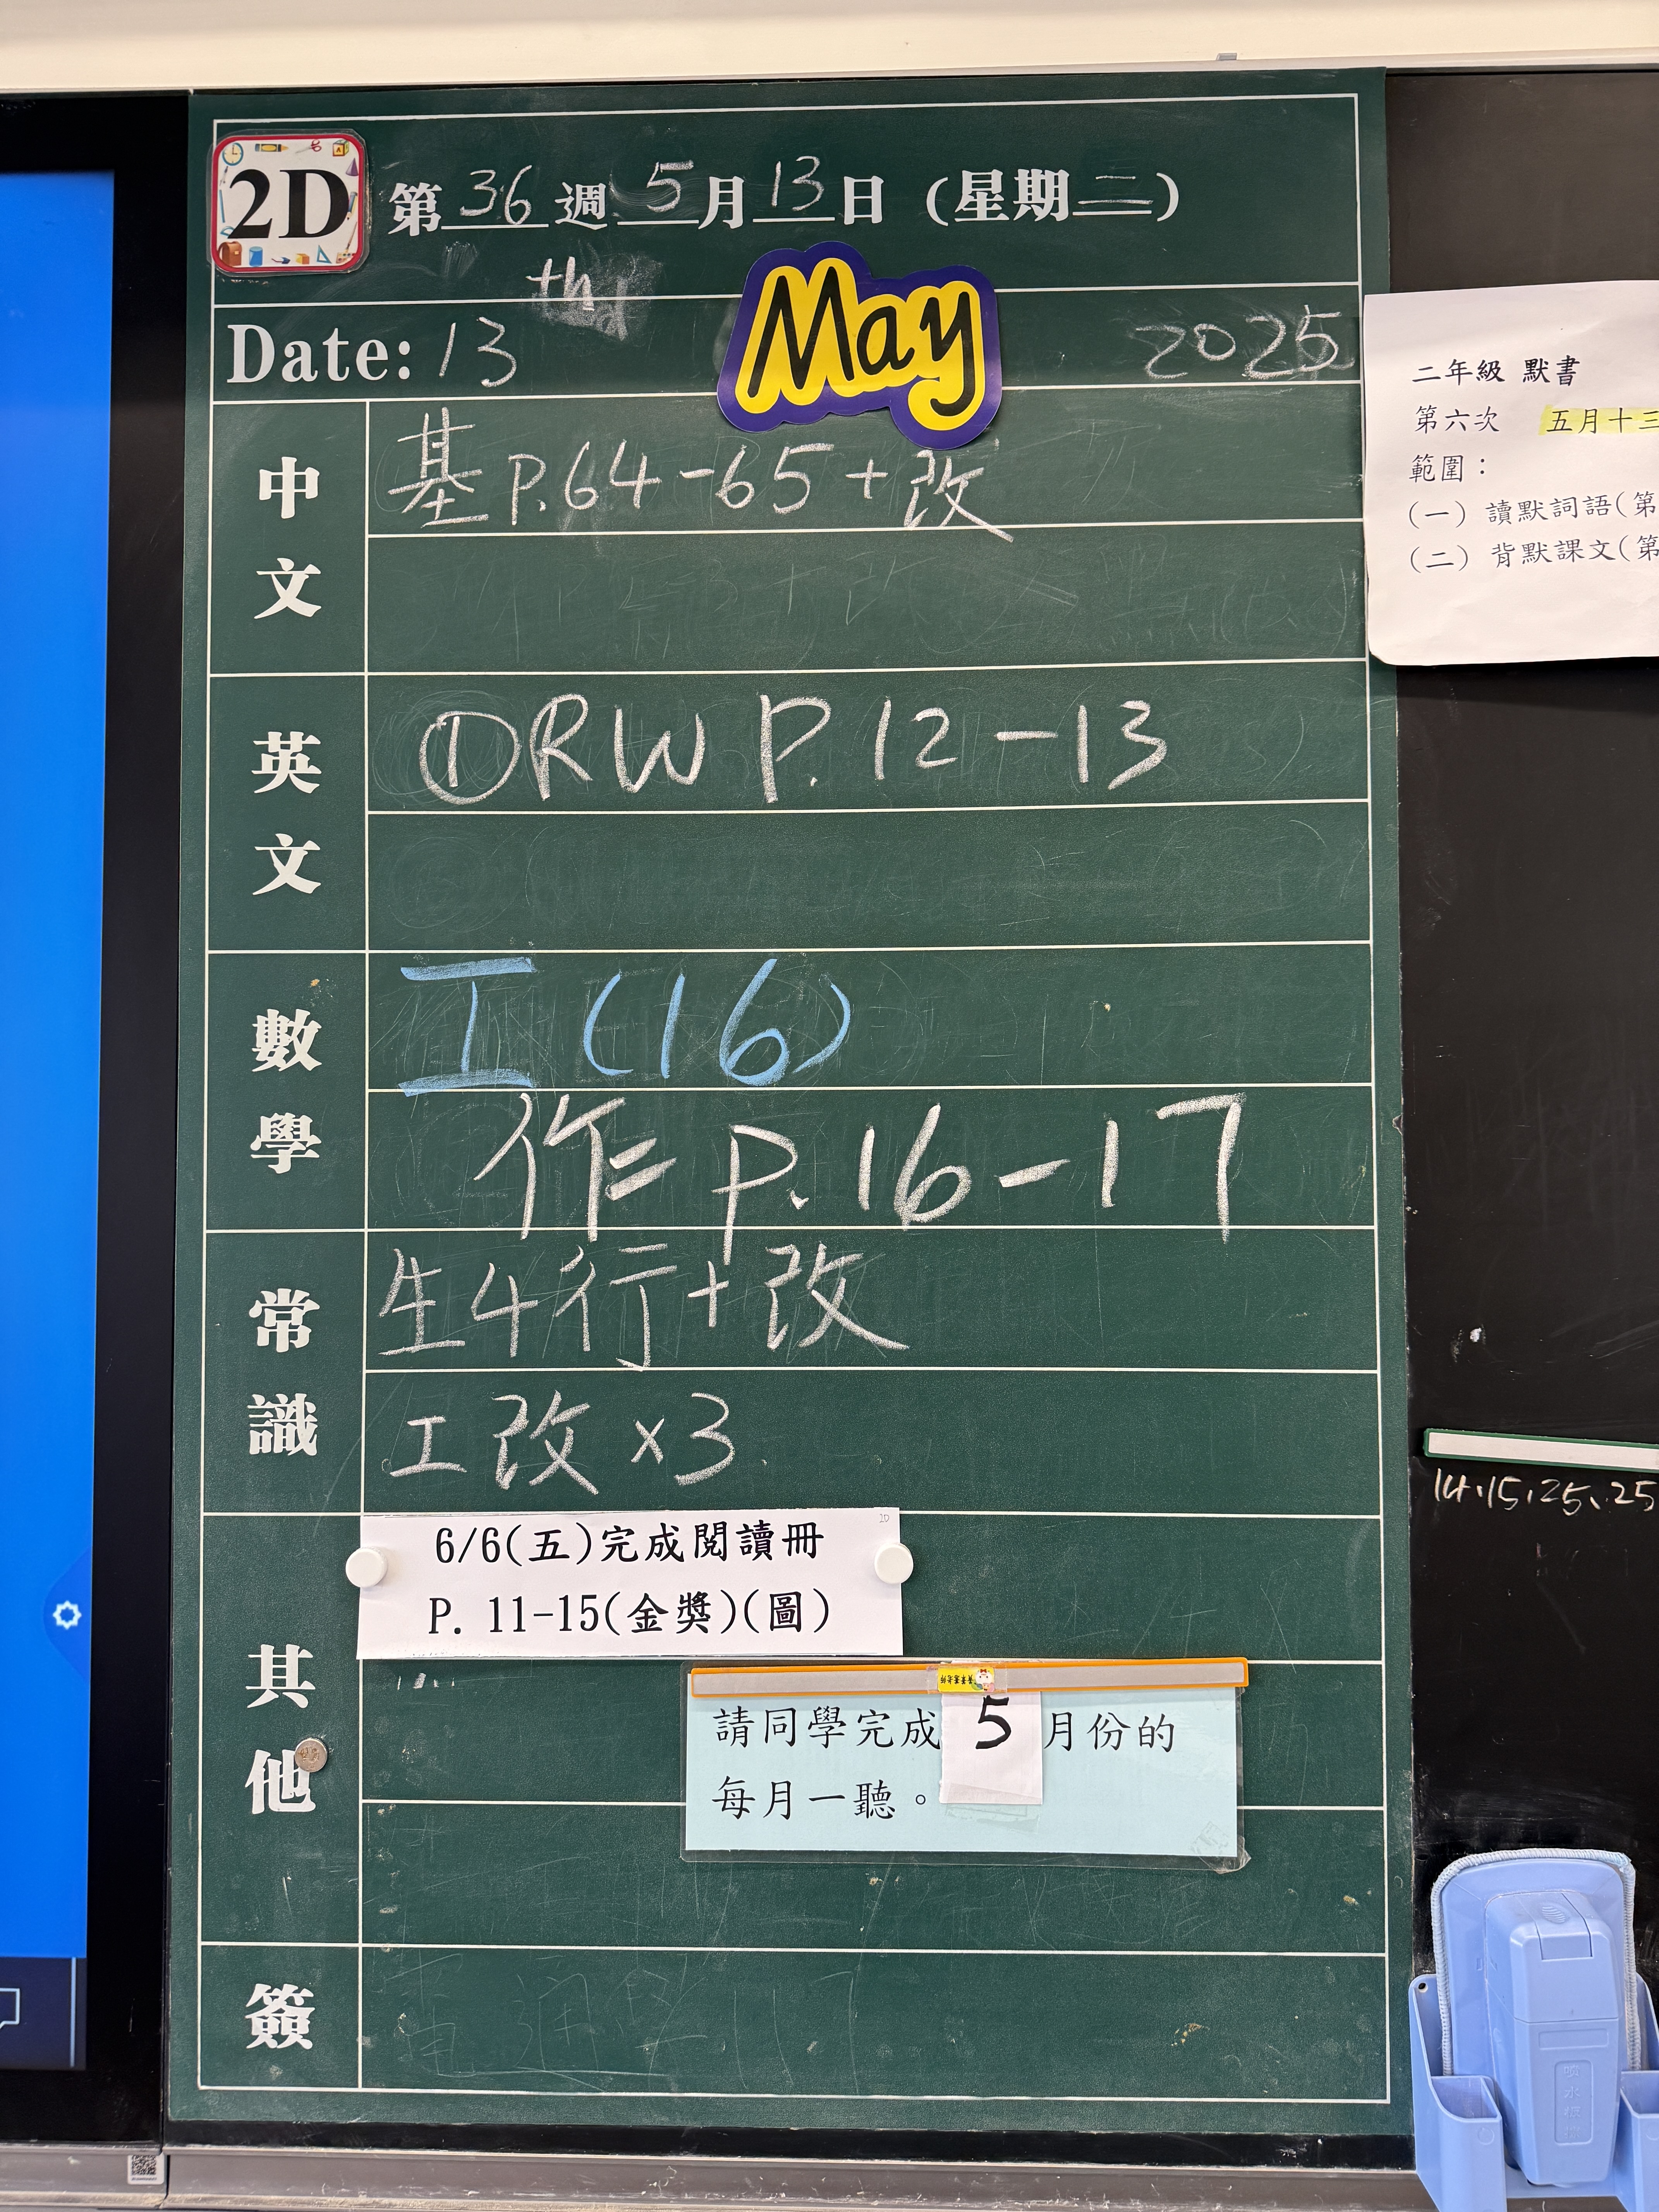 2D
第 36 週 5 月 13 日 (星期二)
th
Date: 13 May 2025
中文
基 P.64-65+改
英文
①RW P.12-13
數學
工(16)
作 P.16-17
常識
生4行+改
工改×3
其他
6/6(五)完成閱讀冊
P. 11-15(金獎)(圖)
請同學完成 5 月份的
每月一聽。
簽
二年級 默書
第六次 五月十三
範圍：
(一) 讀默詞語(第
(二) 背默課文(第
14、15、25、25